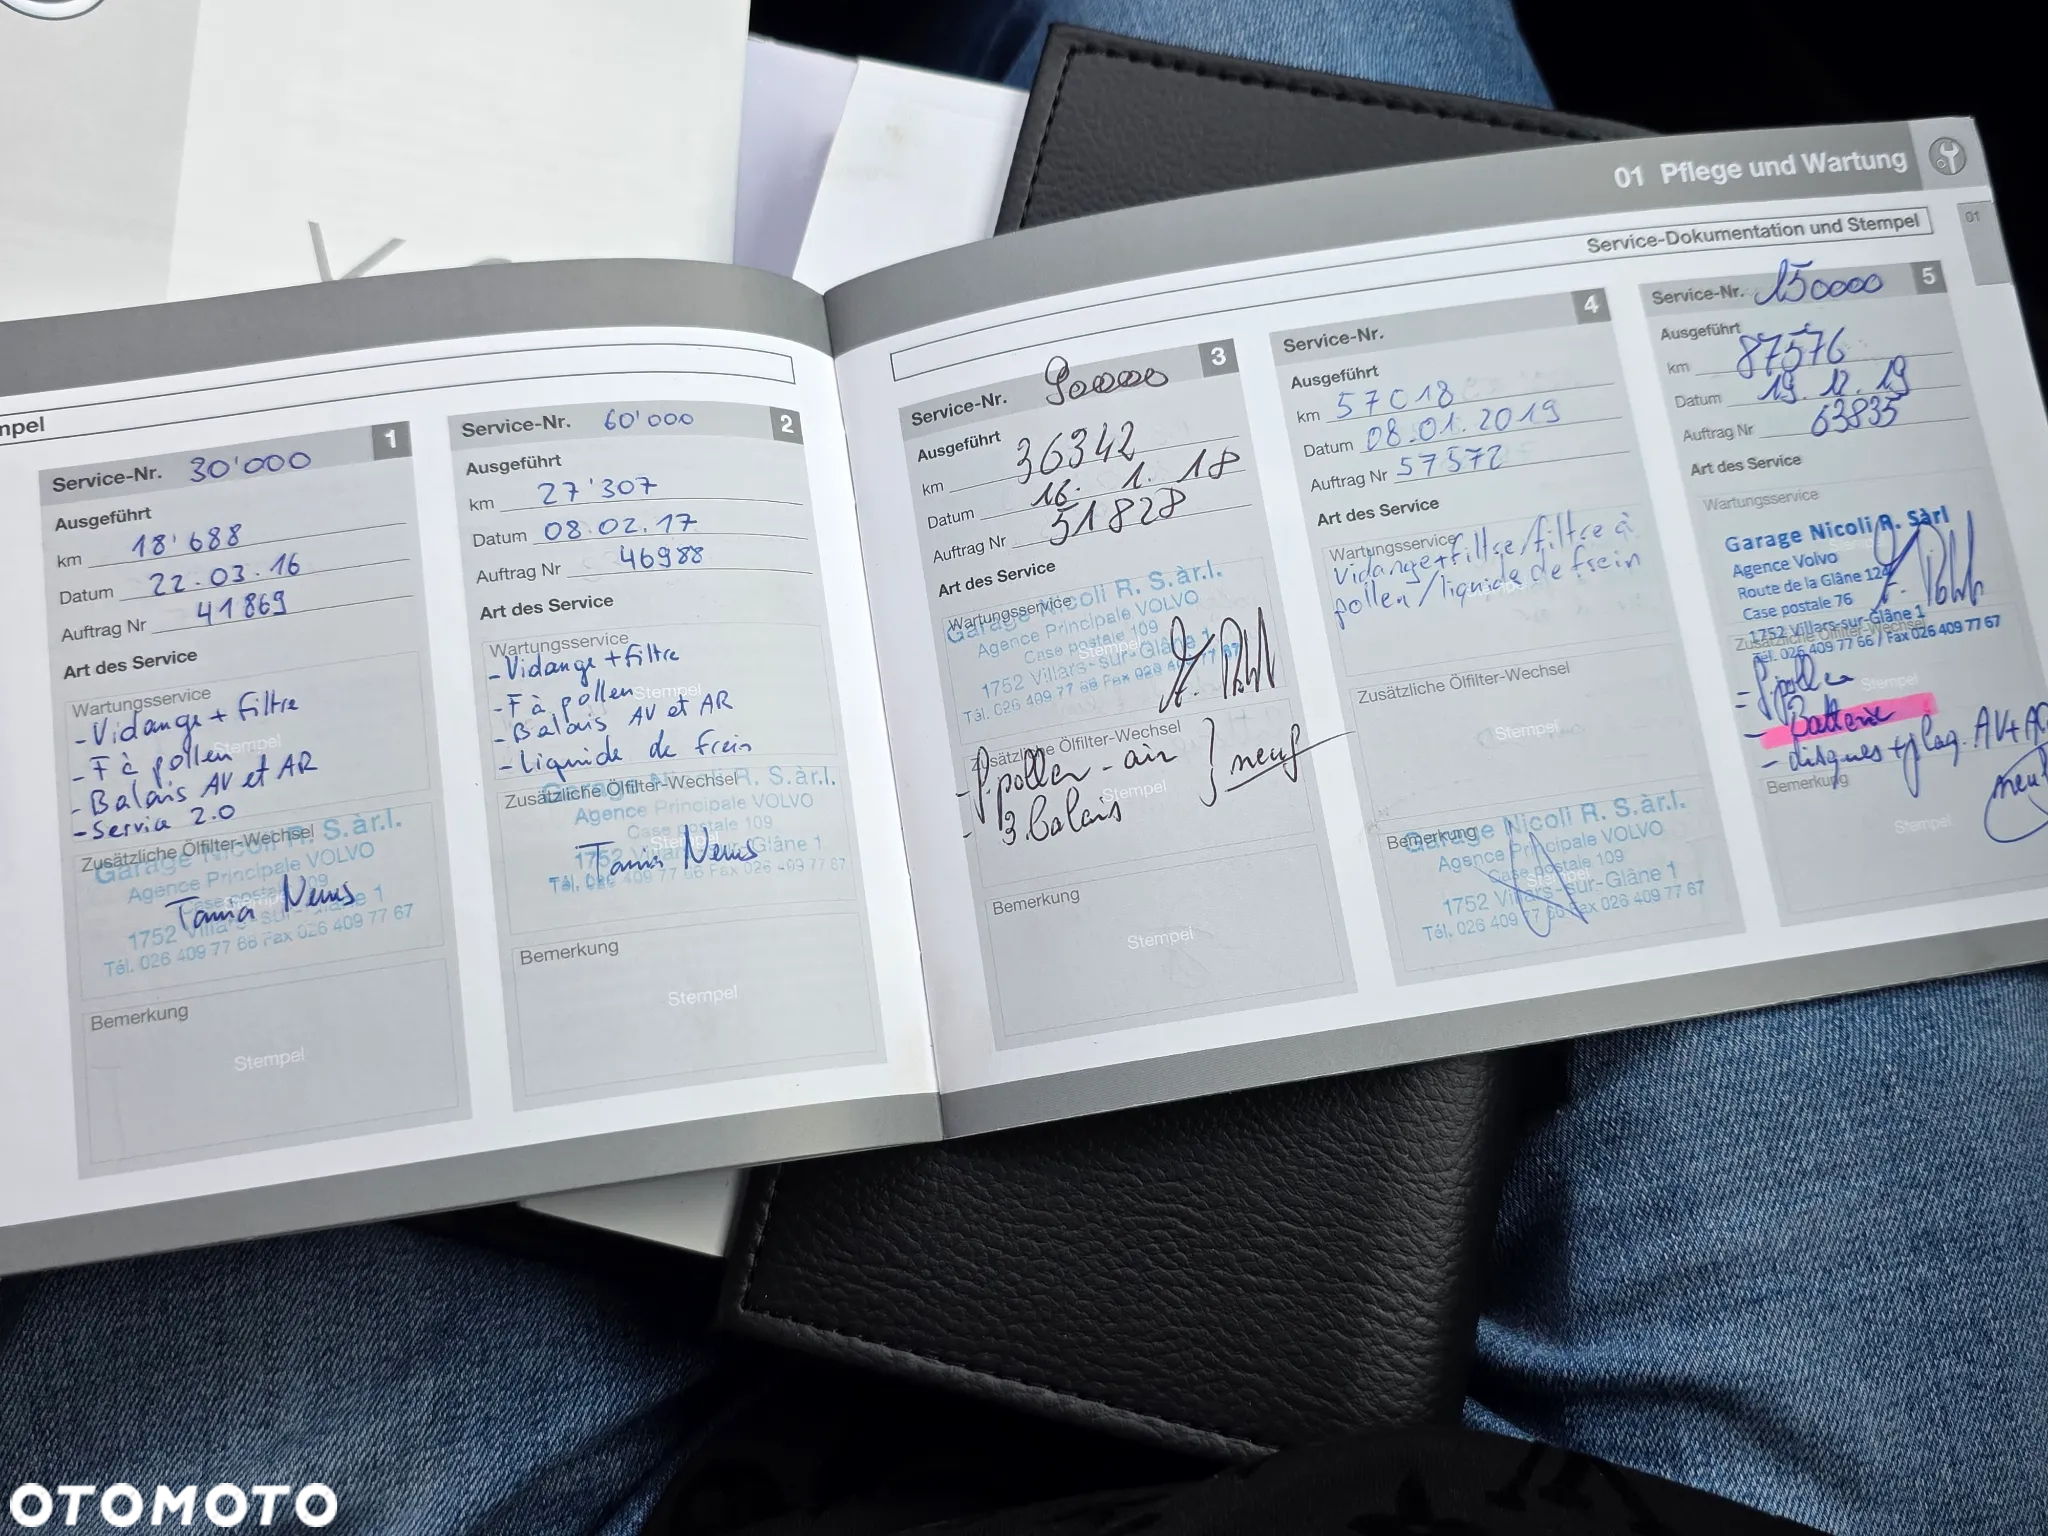 mpel
Service-Nr. 30'000 1
Ausgeführt
km 18'688
Datum 22.03.16
Auftrag Nr 41869
Art des Service
Wartungsservice
- Vidange + filtre
- F à pollen
Stempel
- Balais AV et AR
- Service 2.0
Zusätzliche Ölfilter-Wechsel
Garage Nicoli R. S.àr.l.
Agence Principale VOLVO
Case postale 109
1752 Villars-sur-Glâne 1
Tél. 026 409 77 66 Fax 026 409 77 67
Bemerkung
Stempel
Service-Nr. 60'000 2
Ausgeführt
km 27'307
Datum 08.02.17
Auftrag Nr 46988
Art des Service
Wartungsservice
- Vidange + filtre
- F à pollen
Stempel
- Balais AV et AR
- Liquide de frein
Zusätzliche Ölfilter-Wechsel
Garage Nicoli R. S.àr.l.
Agence Principale VOLVO
Case postale 109
1752 Villars-sur-Glâne 1
Tél. 026 409 77 66 Fax 026 409 77 67
Bemerkung
Stempel
01 Pflege und Wartung
01
Service-Dokumentation und Stempel
Service-Nr. 90000 3
Ausgeführt
km 36342
Datum 16.1.18
Auftrag Nr 51828
Art des Service
Wartungsservice
Garage Nicoli R. S.àr.l.
Agence Principale VOLVO
Case postale 109
Stempel
1752 Villars-sur-Glâne 1
Tél. 026 409 77 66 Fax 026 409 77 67
Zusätzliche Ölfilter-Wechsel
- f. pollen - air } neuf
- 3 balais
Stempel
Bemerkung
Stempel
Service-Nr. 4
Ausgeführt
km 57018
Datum 08.01.2019
Auftrag Nr 57572
Art des Service
Wartungsservice
Vidange+filtre/filtre à
pollen/liquide de frein
Zusätzliche Ölfilter-Wechsel
Stempel
Bemerkung
Garage Nicoli R. S.àr.l.
Agence Principale VOLVO
Case postale 109
1752 Villars-sur-Glâne 1
Tél. 026 409 77 66 Fax 026 409 77 67
Service-Nr. 150000 5
Ausgeführt
km 87576
Datum 19.12.19
Auftrag Nr 63835
Art des Service
Wartungsservice
Garage Nicoli R. Sàrl
Agence Volvo
Route de la Glâne 124
Case postale 76
1752 Villars-sur-Glâne 1
Zusätzliche Ölfilter-Wechsel
Tél. 026 409 77 66 / Fax 026 409 77 67
- f. pollen
Stempel
- Batterie
- disques + plaq. AV+AR
neuf
Bemerkung
Stempel
OTOMOTO